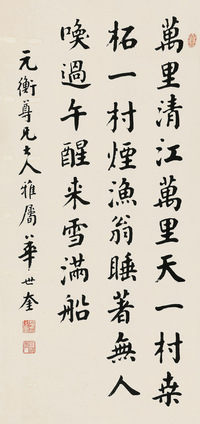 萬里清江萬里天一村桑
柘一村煙漁翁睡著無人
喚過午醒来雪滿船
元衡尊兄大人雅屬 華世奎